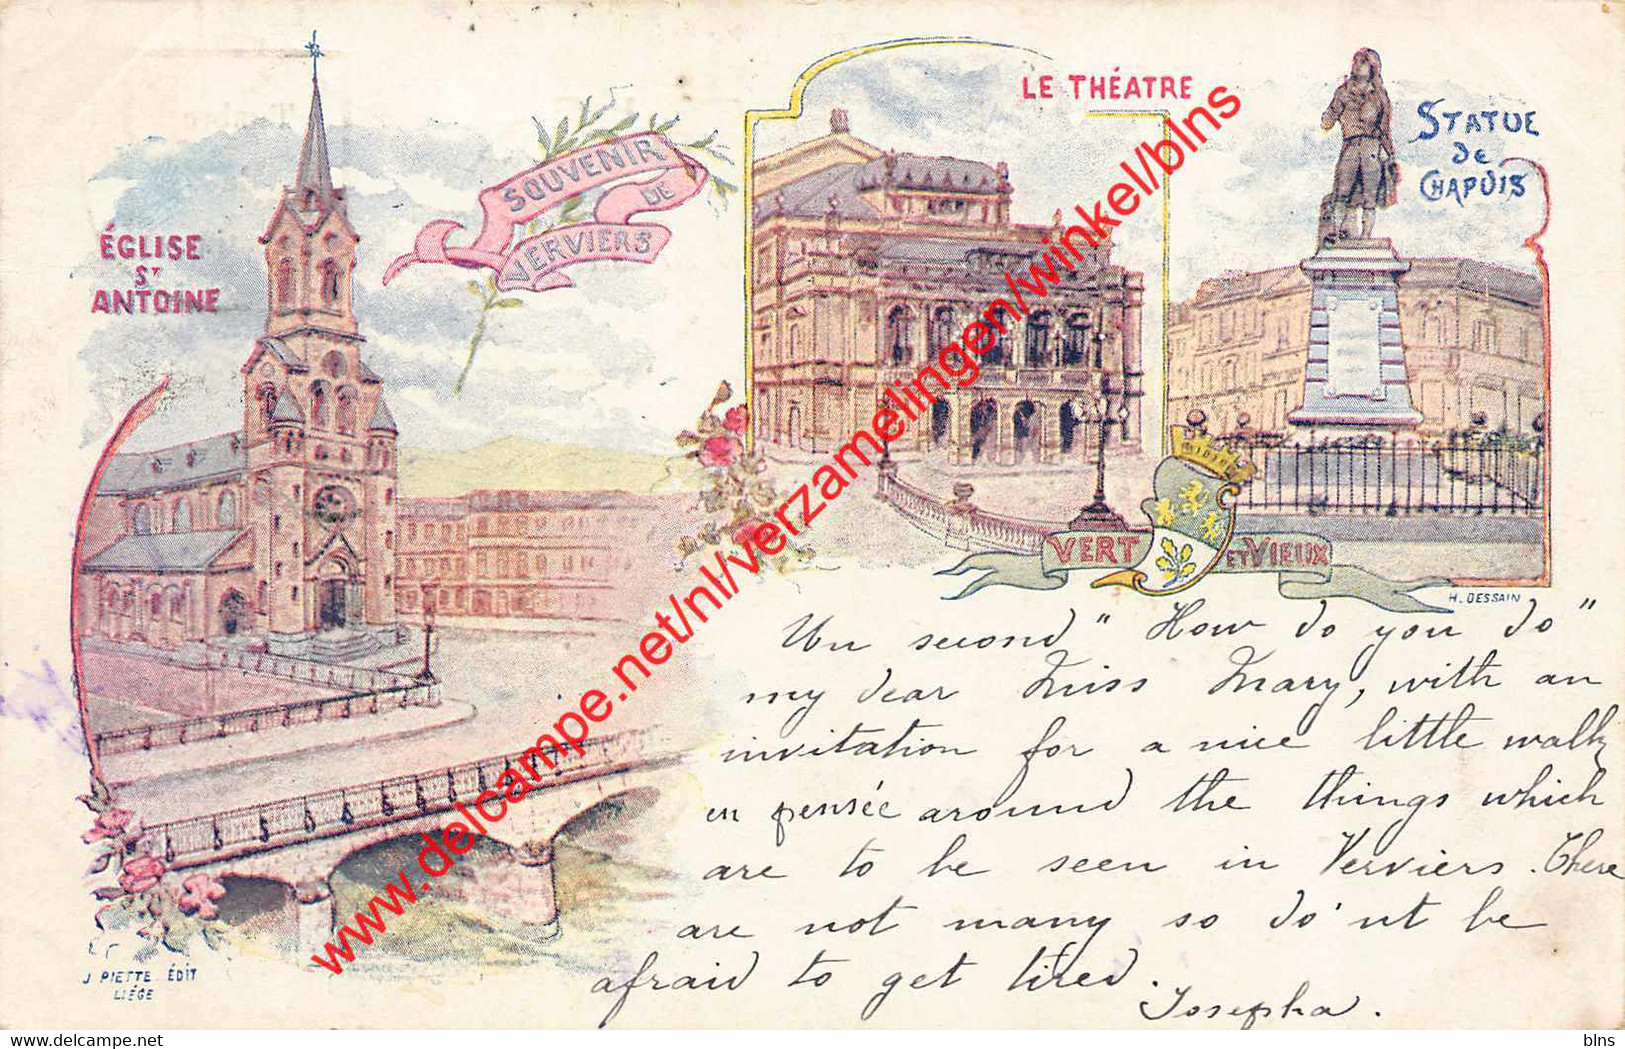 ÉGLISE
ST
ANTOINE
SOUVENIR
DE
VERVIERS
LE THÉATRE
STATUE
de
CHAPUIS
VERT ET VIEUX
H. DESSAIN
Un second "How do you do"
my dear Miss Mary, with an
invitation for a nice little walk
en pensée around the things which
are to be seen in Verviers. There
are not many so do'nt be
afraid to get tired.
Josepha.
J PIETTE. ÉDIT
LIÉGE
www.delcampe.net/nl/verzamelingen/winkel/blns
Scanned by bIns
blns